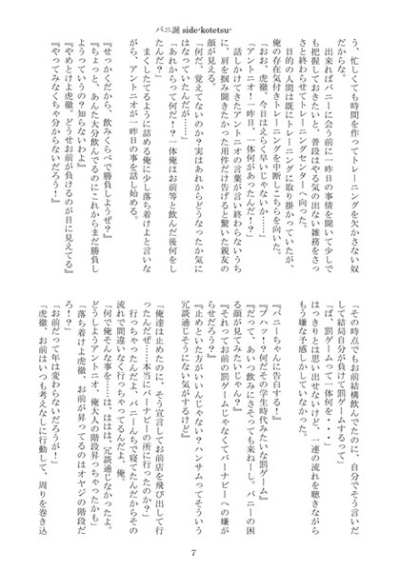 バニ誕 side-kotetsu-
う、忙しくても時間を作ってトレーニングを欠かさない奴
だからな。
出来ればバニーに会う前に一昨日の事情を聞いて少しで
も把握しておきたいと、普段はやる気の出ない雑務をさっ
さと終わらせてトレーニングセンターへ向かった。
目的の人間は既にトレーニングに取り掛かっていたが、
俺の存在気付きトレーニングを中断しこちらを向いた。
「おお、虎徹。今日はえらく早いじゃないか……」
「アントニオ！一昨日、一体何があったんだ！？」
話しかけてきたアントニオの言葉が言い終わらないうち
に、肩を掴み聞きたかった用件だけ告げると驚いた親友の
顔が見える。
「何だ、覚えてないのか？実はあれからどうなったか気に
はなっていたんだが……」
「あれからって何だ！？一体俺はお前等と飲んだ後何をし
たんだ？」
まくしたてるように詰める俺に少し落ち着けよと言いな
がら、アントニオが一昨日の事を話し始める。
『せっかくだから、飲みくらべで勝負しようぜ？』
『ちょっと、あんた大分飲んでるのにこれからまだ勝負し
ようっていうの？知らないわよ』
『やめとけよ虎徹、どうせお前が負けるのが目に見えてる』
『やってみなくちゃ分からないだろう！』
「その時点でもお前結構飲んでたのに、自分でそう言いだ
して結局自分が負けて罰ゲームするって」
「ば、罰ゲームって一体何を・・・」
はっきりとは思い出せないけど、一連の流れを聴きながら
もう嫌な予感しかしていなかった。
『バニーちゃんに告白する！』
『ブハッ！？何だその学生時代みたいな罰ゲーム』
『だって、あいつ飲みにさそっても来ねーし。バニーの困
る顔が見てみたいじゃん？』
『それってお前の罰ゲームじゃなくてバーナビーへの嫌が
らせだろう？』
『止めといた方がいいんじゃない？ハンサムってそういう
冗談通じそうにない気がするけど』
「俺達は止めたのに、そう宣言してお前店を飛び出して行
ったんだぜ……本当にバーナビーの所に行ったのか？」
行っちゃったんだよ、バニーんちで寝てたんだからその
流れで間違いなく行っちゃってるんだよ、俺。
「何で俺そんな事を……は、ははは、冗談通じなかったよ。
どうしようアントニオ、俺大人の階段昇っちゃったかも」
「落ち着けよ虎徹、お前が昇ってるのはオヤジの階段だ
ろ！？」
「お前だって年は変わらないだろうが！」
「虎徹、お前はいつも考えなしに行動して、周りを巻き込
7